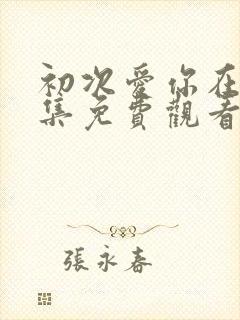 初次愛你在
集免費觀看
張永春